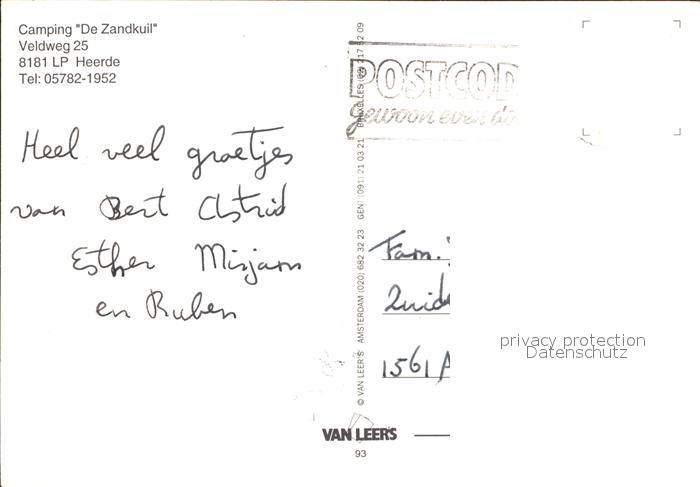 Camping "De Zandkuil"
Veldweg 25
8181 LP Heerde
Tel: 05782-1952
Heel veel groetjes
van Bert Astrid
Esther Mirjam
en Ruben
POSTCOD
gewoon even do
© VAN LEER'S AMSTERDAM (020) 682 32 23 GENT (091) 21 03 21 BRUXELLES
Fam.
Zuid
1561 A
privacy protection
Datenschutz
VAN LEER'S
93